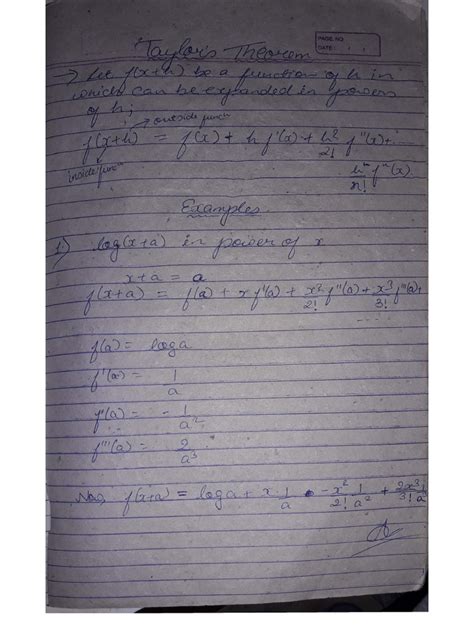 Taylor's Theorem
PAGE NO
DATE : / /
→ Let f(x+h) be a function of h in
which can be expanded in powers
of h;
→ outside func
f(x+h) = f(x) + h f'(x) + h²/2! f''(x)+..
Inside func
hⁿ/n! fⁿ(x)
Examples
1.) log(x+a) in power of x
x+a = a
f(x+a) = f(a) + x f'(a) + x²/2! f''(a) + x³/3! f'''(a)+
.....
f(a) = log a
f'(a) = 1/a
f''(a) = - 1/a²
f'''(a) = 2/a³
Now, f(x+a) = log a + x. 1/a - x²/2! 1/a² + 2x³/3! 1/a